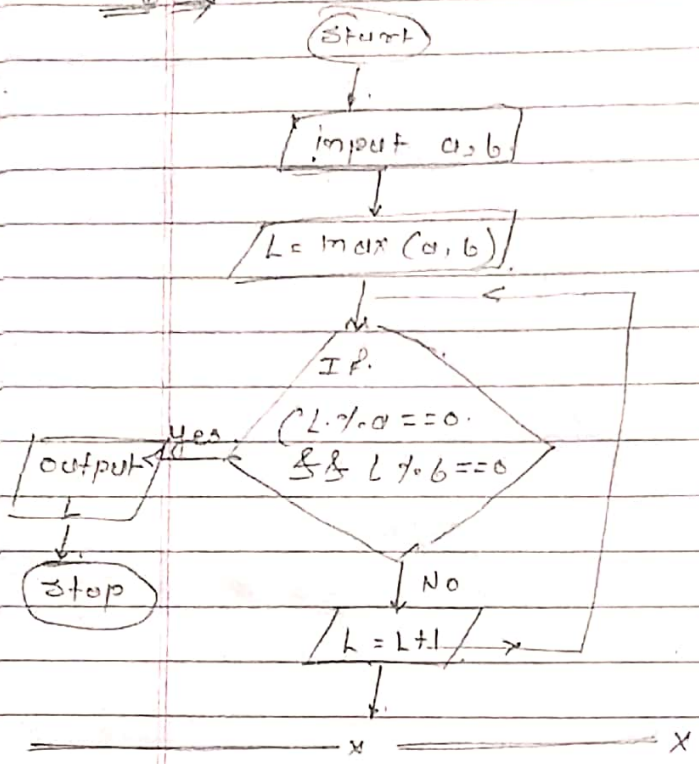 Start
input a, b
L = max (a, b)
If
(L % a == 0
&& L % b == 0
Yes
output
L
Stop
No
L = L+1
x
x